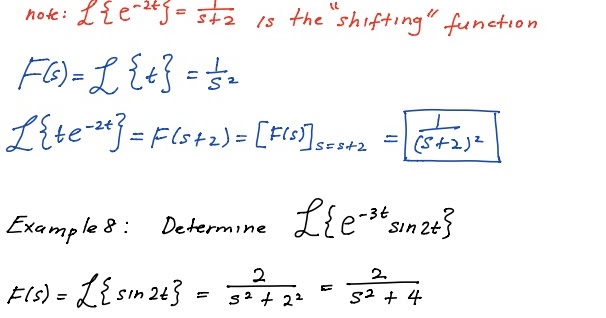 note: ℒ{e^-2t} = 1/(s+2) is the "shifting" function
F(s) = ℒ{t} = 1/s²
ℒ{te^-2t} = F(s+2) = [F(s)]_s=s+2 = 1/(s+2)²
Example 8: Determine ℒ{e^-3t sin2t}
F(s) = ℒ{sin2t} = 2/(s² + 2²) = 2/(s² + 4)